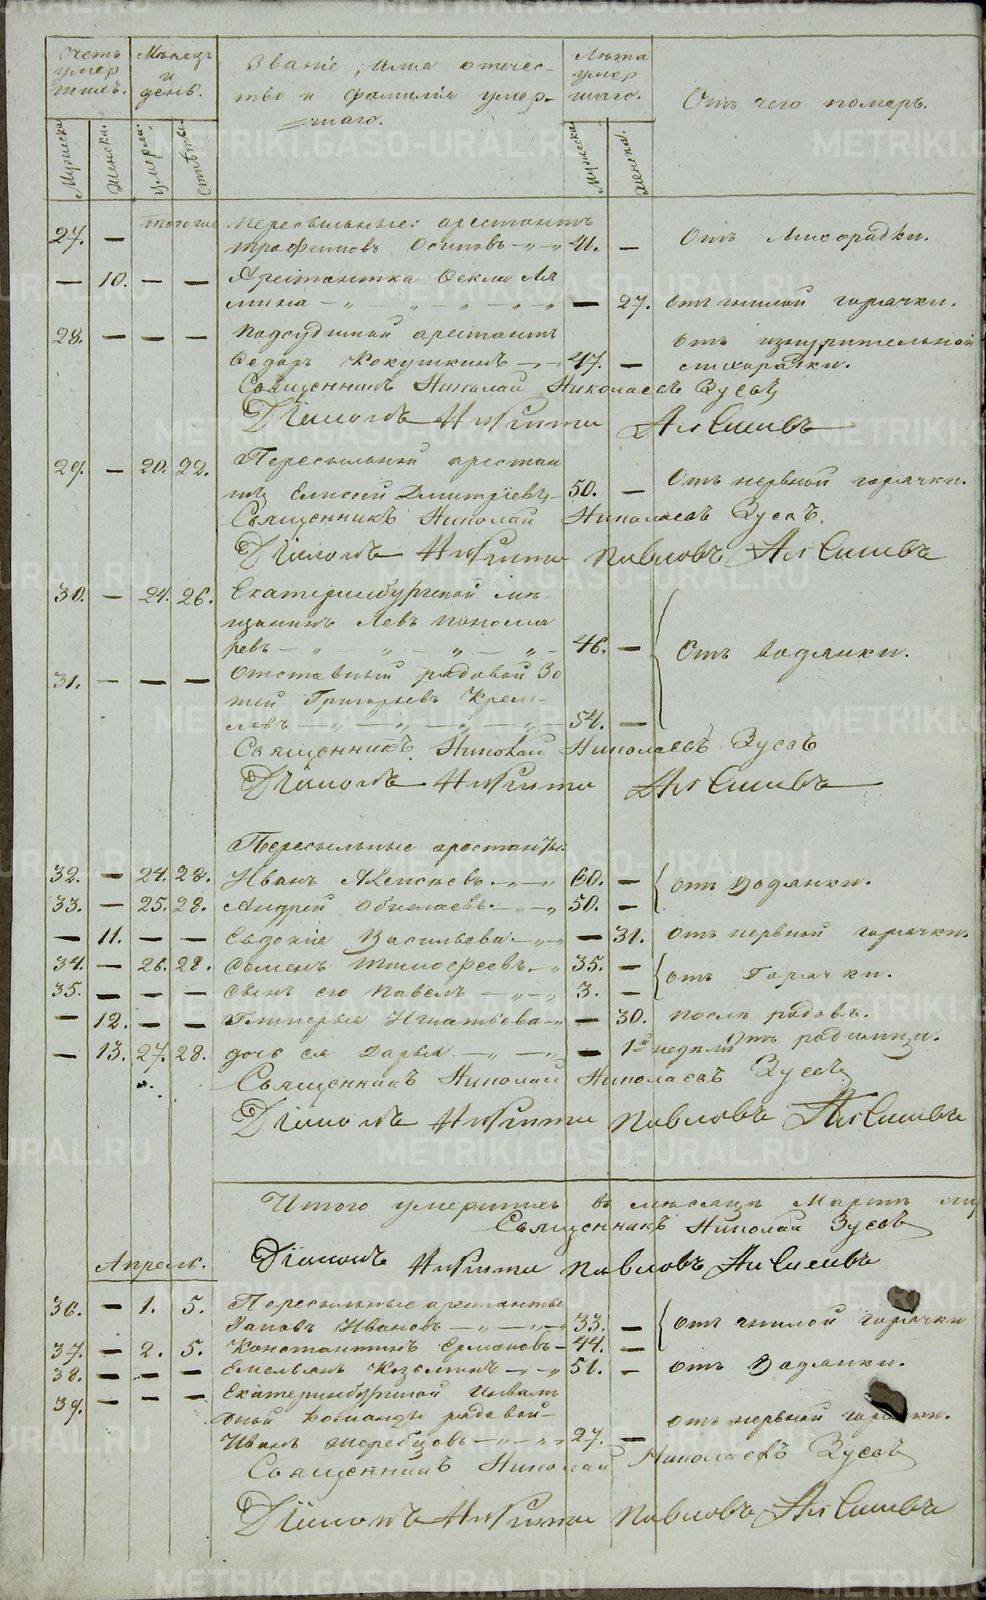 Счетъ умершихъ.
Мѣсяцъ и день.
Званіе, имя отечество и фамилія умершаго.
Лѣта умершаго.
Отъ чего померъ.
Мужеска. Женска. умерли. Мужеска Женска.
27. — тогоже Пересыльные: арестантъ
Трофимовъ Осиповъ 41. — Отъ Лихорадки.
— 10. — — Арестантка Ѳекла
— 27. отъ гнилой горячки.
28. — — — Подсудимый арестантъ Отъ изнурительной
Ѳедоръ Кокушкинъ 47. — лихорадки.
Священникъ Николай Николаевъ Зусевъ
Діаконъ Никита
29. — 20. 22. Пересыльный арестан
тъ Елисей Дмитріевъ 50. — Отъ нервной горячки.
Священникъ Николай Николаевъ Зусевъ.
Діаконъ Никита Павловъ
30. — 24. 26. Екатеринбургской мѣ-
щанинъ Левъ Понома
ревъ 46. — Отъ водянки.
31. — — — Отставный рядовой Зо
тей Григорьевъ Крем-
левъ 54. —
Священникъ Николай Николаевъ Зусевъ
Діаконъ Никита
Пересыльные арестанты:
32. — 24. 28. Иванъ Алексѣевъ. 60. — отъ Водянки.
33. — 25. 28. Андрей 50. —
— 11. — — Евдокія Васильева. — 31. Отъ нервной горячки.
34. — 26. 28. Семенъ Тимофеевъ. 35. — отъ Горячки.
35. — — — сынъ его Павелъ 3. —
— 12. — — Гликерья Игнатьева — 30. послѣ родовъ.
— 13. 27. 28. дочь ея Дарья — 1я недѣли Отъ родимца.
Священникъ Николай Николаевъ Зусевъ
Діаконъ Никита Павловъ
Итого умершихъ въ мѣсяцѣ Мартѣ
Священникъ Николай Зусевъ
Апрель. Діаконъ Никита Павловъ
36. — 1. 5. Пересыльные арестанты
Иванов 33. — отъ гнилой горячки
37. — 2. 5. Константинъ Ермановъ 44. —
38. — — — Емельянъ Козьминъ 51. — отъ Водянки.
39. — — — Екатеринбургской Инвали
дной команды рядовой
Иванъ Жеребцовъ 27. — отъ нервной горячки.
Священникъ Николай Николаевъ Зусевъ
Діаконъ Никита Павловъ
METRIKI.GASO-URAL.RU